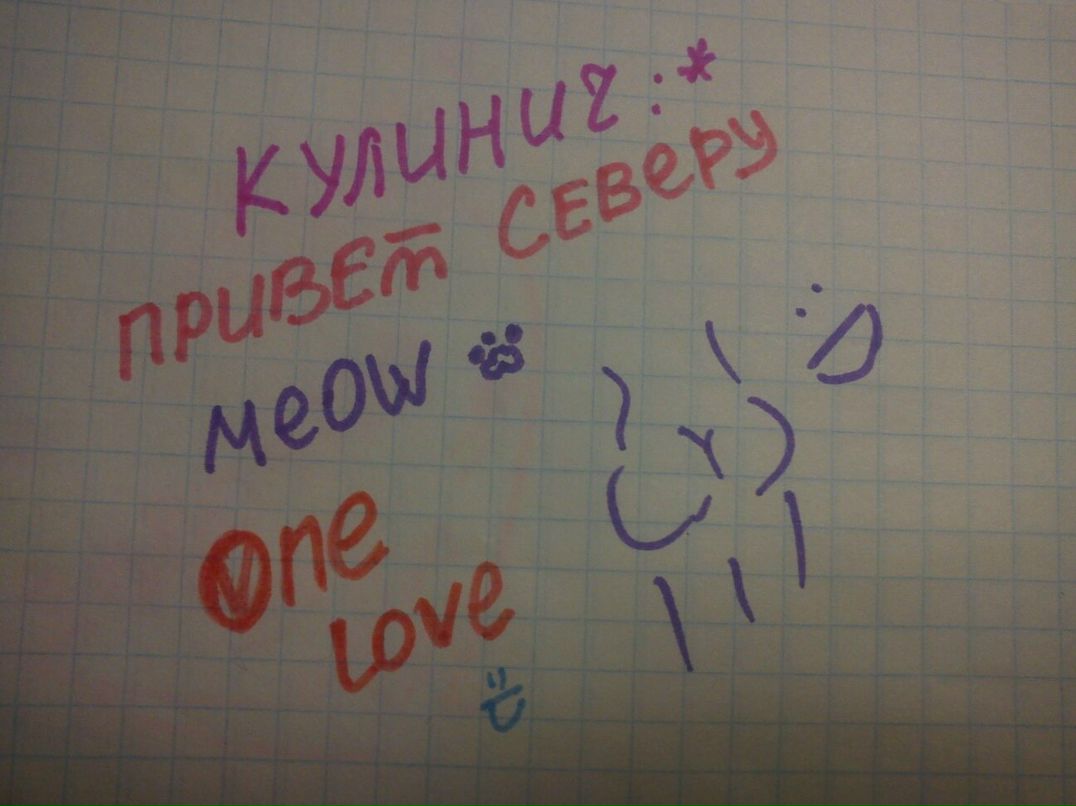 КУЛИНИЧ :*
ПРИВЕТ СЕВЕРУ
MEOW
One
LOVE